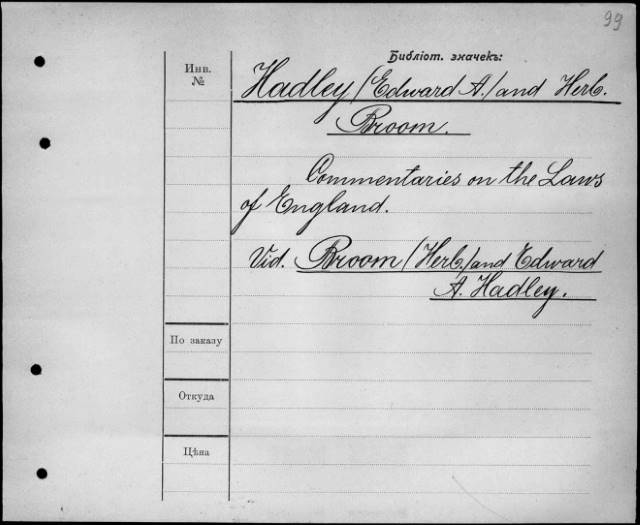 99
Библіот. значекъ:
Инв.
№
Hadley (Edward A.) and Herb.
Broom.
Commentaries on the Laws
of England.
Vid. Broom (Herb.) and Edward
A. Hadley.
По заказу
Откуда
Цѣна